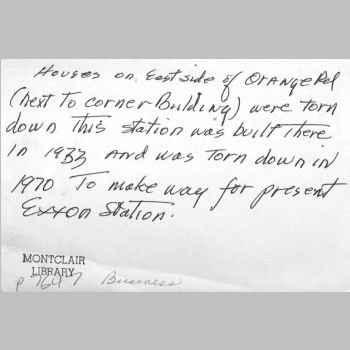 Houses on East side of Orange Rd
(next To corner Building) were torn
down This station was built There
in 1933 and was Torn down in
1970 To make way for present
Exxon Station.
MONTCLAIR
LIBRARY
Business